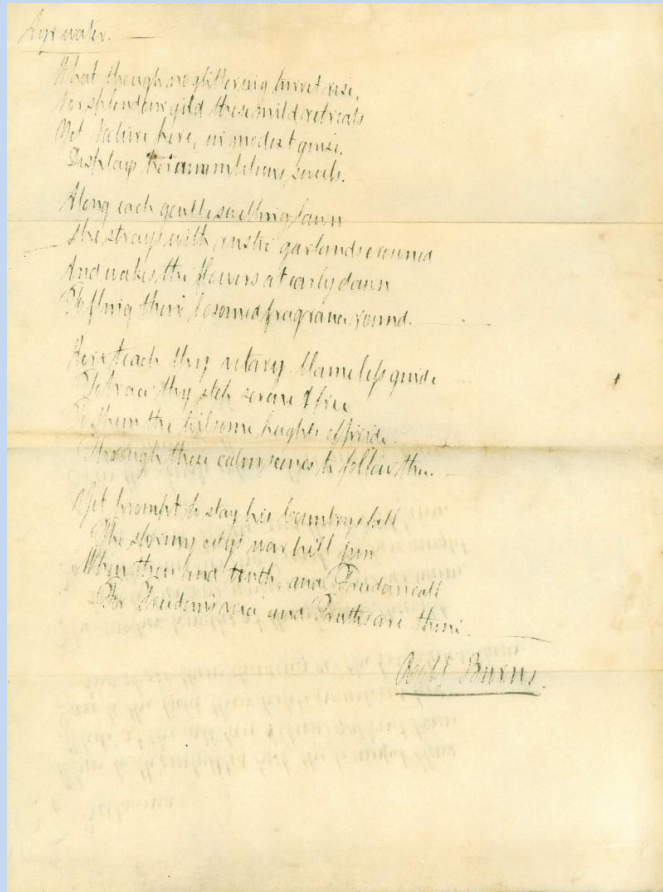 Ayr water. —
What though no glittering turret rise,
Nor splendour gild these mild retreats
Yet Nature here, in modest guise,
Displays her unambitious sweets.
Along each gentle swelling lawn
She strays with rustic garlands crowned
And wakes the flowers at early dawn
To fling their bosomed fragrance round.
Here teach thy votary blameless guide
To trace thy step serene & free
To shun the toilsome heights of pride
Through these calm scenes to follow thee.
Yet prompt to stay his Country's fall
The stormy city's war
When thou and truth, and Freedom call
For Freedom's voice and Truth's are thine.
Robt Burns.